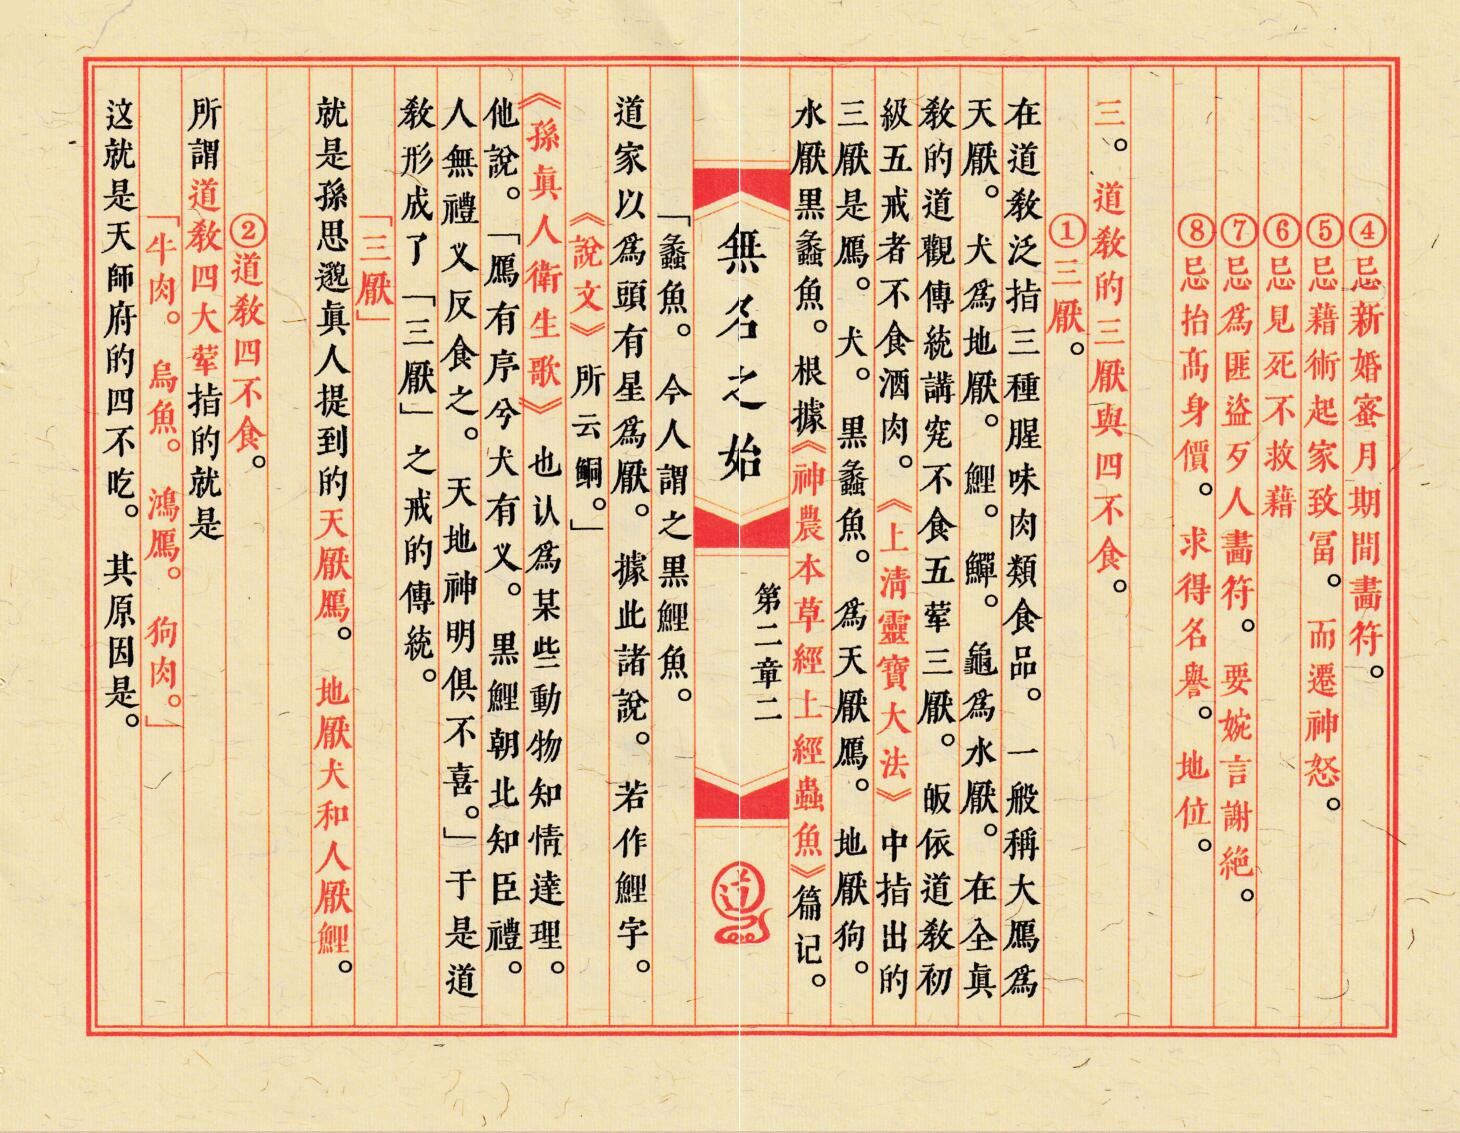 ④忌新婚蜜月期間畵符。
⑤忌藉術起家致冨。而遷神怒。
⑥忌見死不救藉
⑦忌爲匪盜歹人畵符。要婉言謝絶。
⑧忌抬髙身價。求得名譽。地位。
三。道敎的三厭與四不食。
①三厭。
在道敎泛指三種腥味肉類食品。一般稱大鴈爲
天厭。犬爲地厭。鯉。鱓。龜爲水厭。在全眞
敎的道觀傳統講究不食五荤三厭。皈依道敎初
級五戒者不食酒肉。《上淸靈寶大法》中指出的
三厭是鴈。犬。黒蠡魚。爲天厭鴈。地厭狗。
水厭黒蠡魚。根據《神農本草經上經蟲魚》篇记。
無名之始
第二章二
道
「蠡魚。今人謂之黒鯉魚。
道家以爲頭有星爲厭。據此諸說。若作鯉字。
《說文》所云鮦。」
《孫眞人衛生歌》也认爲某些動物知情達理。
他說。「鴈有序兮犬有义。黒鯉朝北知臣禮。
人無禮义反食之。天地神明俱不喜。」于是道
敎形成了「三厭」之戒的傳統。
「三厭」
就是孫思邈眞人提到的天厭鴈。地厭犬和人厭鯉。
②道敎四不食。
所謂道敎四大荤指的就是
「牛肉。烏魚。鴻鴈。狗肉。」
这就是天師府的四不吃。其原因是。